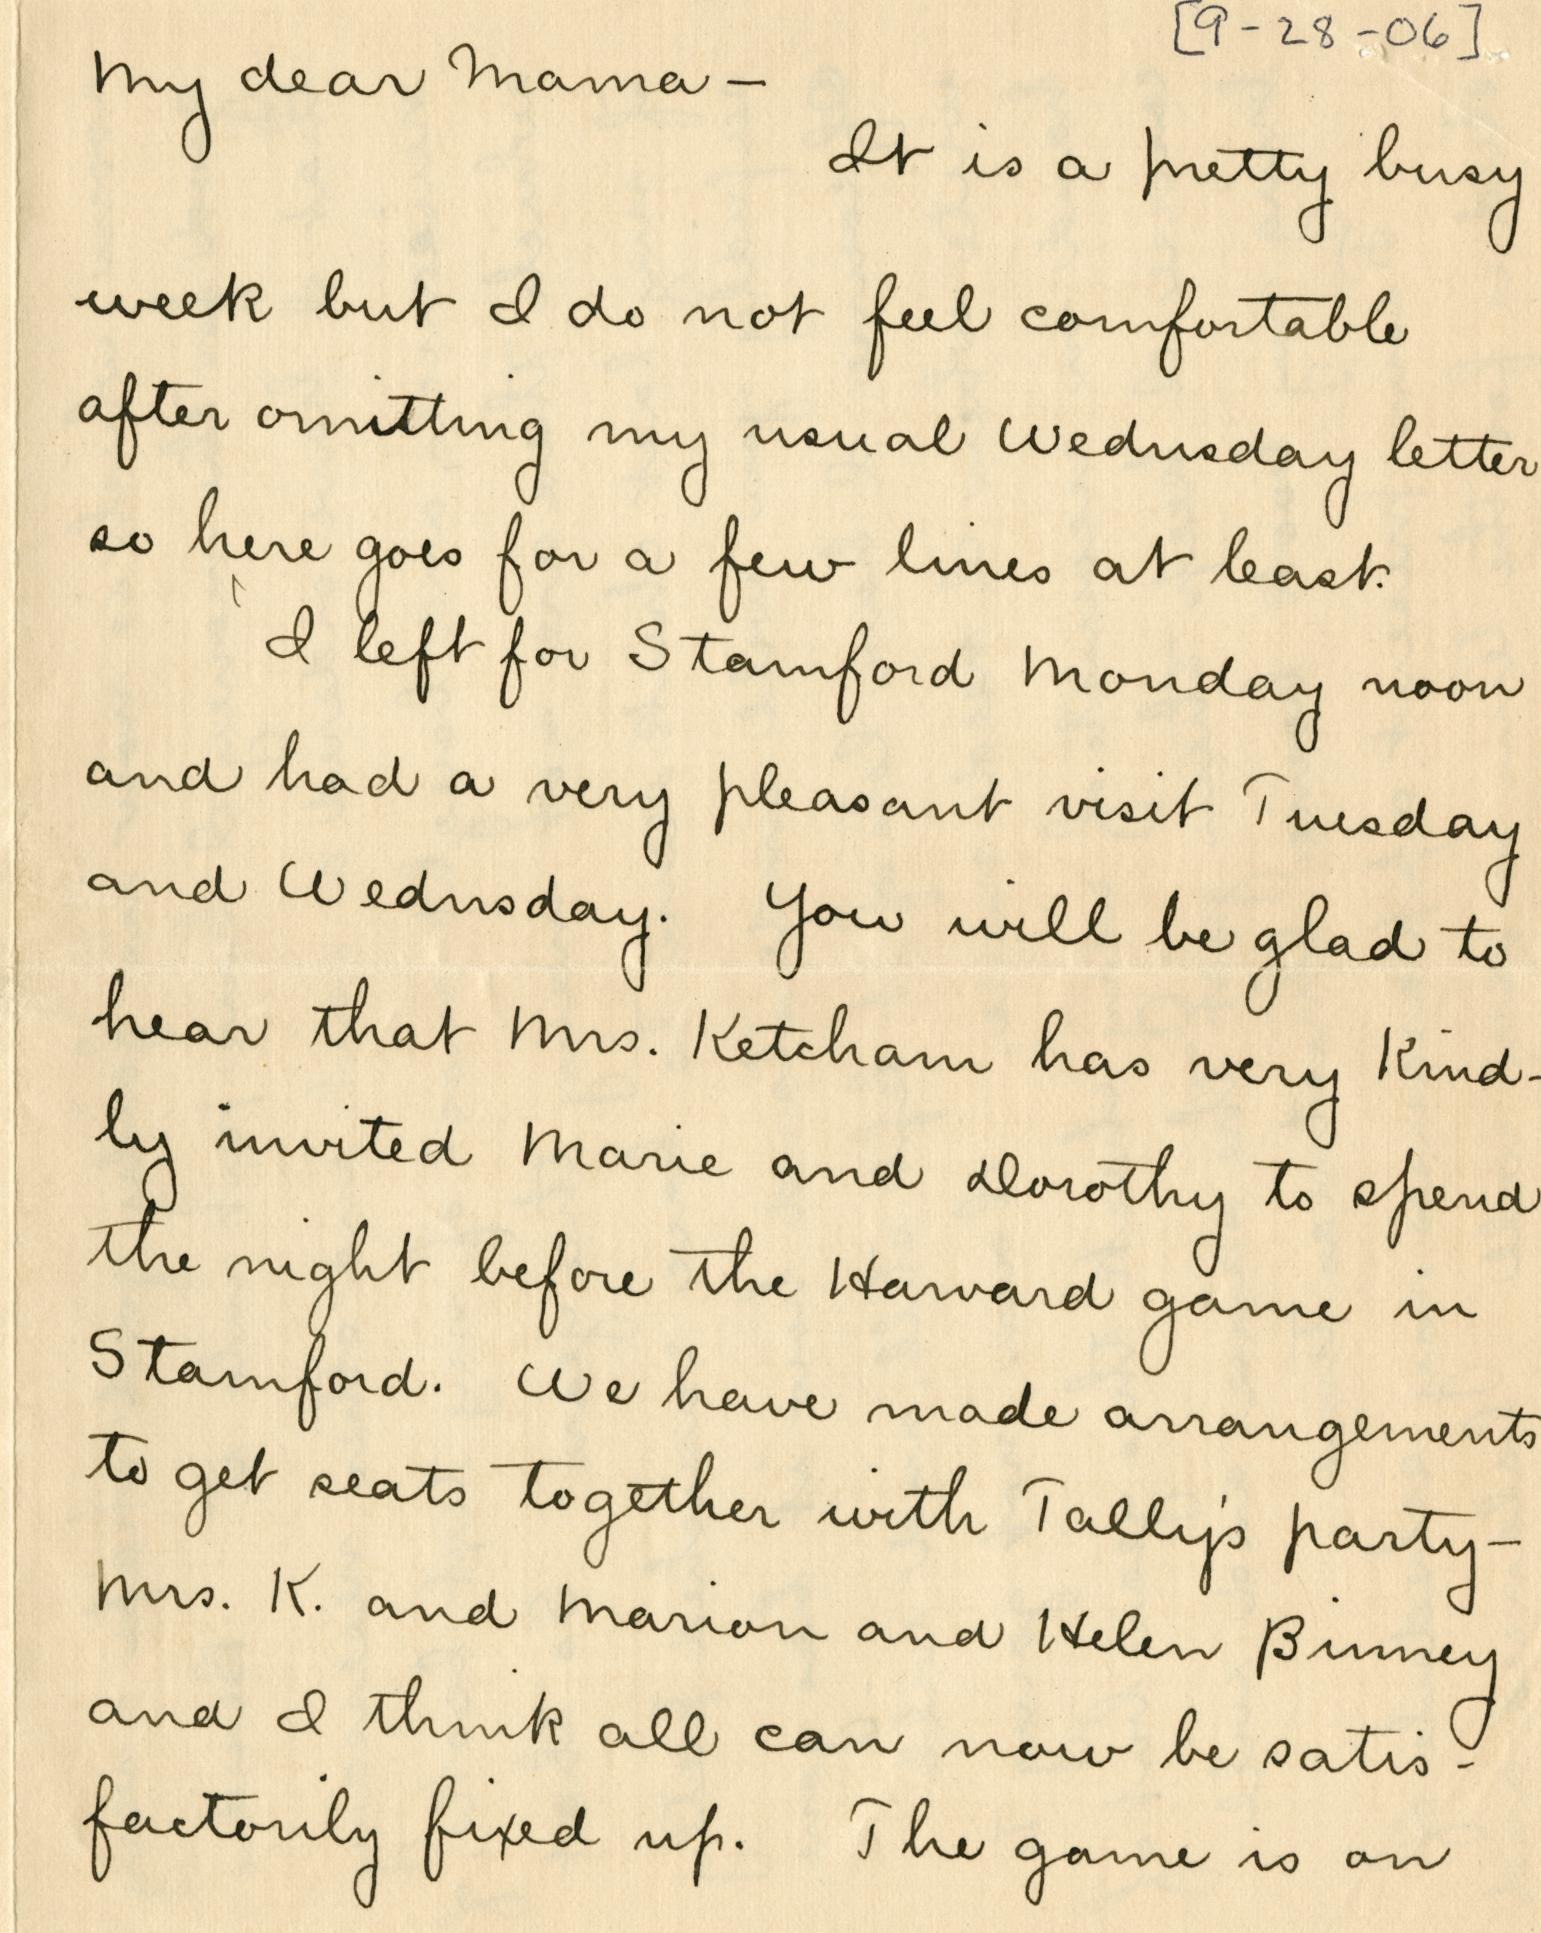 [9-28-06]
My dear Mama —
It is a pretty busy
week but I do not feel comfortable
after omitting my usual Wednesday letter
so here goes for a few lines at least.
I left for Stamford Monday noon
and had a very pleasant visit Tuesday
and Wednsday. You will be glad to
hear that Mrs. Ketcham has very kind-
ly invited Marie and Dorothy to spend
the night before the Harvard game in
Stamford. We have made arrangements
to get seats together with Tally's party —
Mrs. K. and Marion and Helen Binney
and I think all can now be satis-
factorily fixed up. The game is on